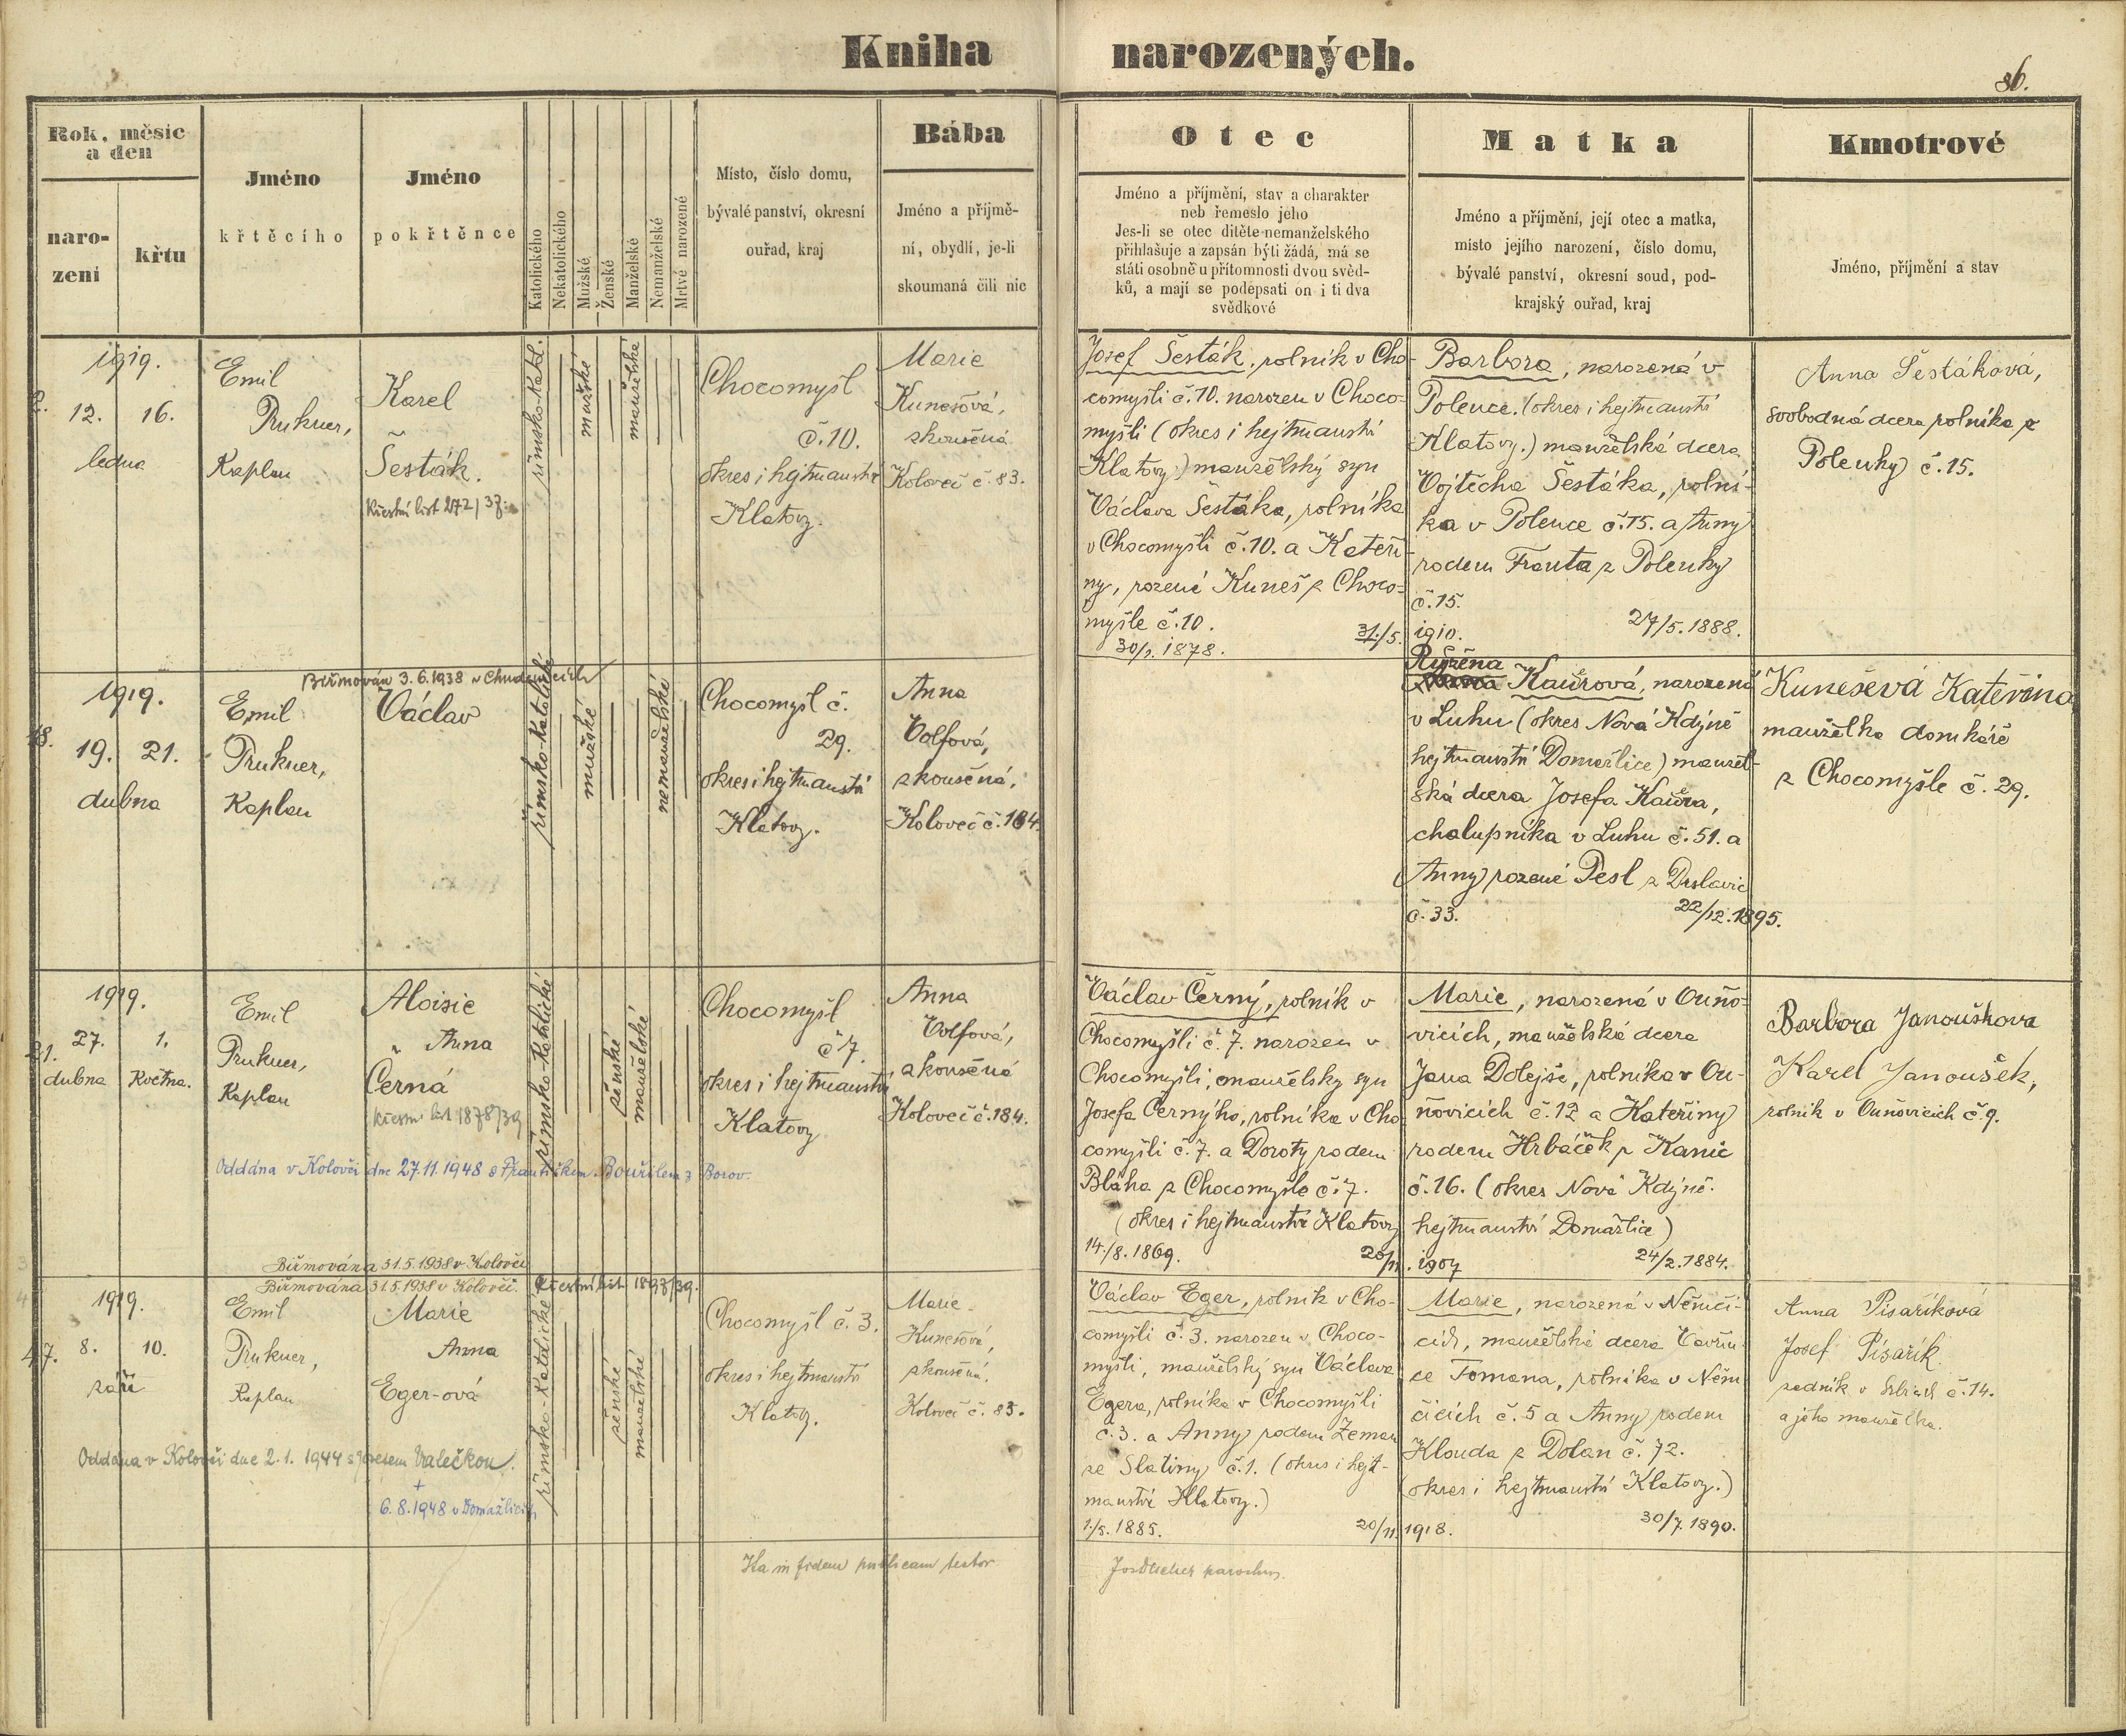 Kniha narozených.
86.
Rok, měsíc
a den
naro-
zení
křtu
Jméno
křtěcího
Jméno
pokřtěnce
Katolického
Nekatolického
Mužské
Ženské
Manželské
Nemanželské
Mrtvě narozené
Místo, číslo domu,
bývalé panství, okresní
ouřad, kraj
Bába
Jméno a příjmě-
ní, obydlí, je-li
skoumaná čili nic
Otec
Jméno a příjmění, stav a charakter
neb řemeslo jeho
Jes-li se otec dítěte nemanželského
přihlašuje a zapsán býti žádá, má se
státi osobně u přítomnosti dvou svěd-
ků, a mají se podepsati on i ti dva
svědkové
Matka
Jméno a příjmění, její otec a matka,
místo jejího narození, číslo domu,
bývalé panství, okresní soud, pod-
krajský ouřad, kraj
Kmotrové
Jméno, příjmění a stav
2.
1919.
12. 16.
ledna
Emil
Prukner,
Kaplan
Karel
Šesták.
Křestní list 272/37.
římsko-katol.
mužské
manželské
Chocomyšl
č. 10.
okres i hejtmanství
Klatovy.
Marie
Kunešová,
zkoušená
Koloveč č. 83.
Josef Šesták, rolník v Cho-
comyšli č. 10. narozen v Choco-
myšli (okres i hejtmanství
Klatovy) manželský syn
Václava Šestáka, rolníka
v Chocomyšli č. 10. a Kateři-
ny, rozené Kuneš z Choco-
myšle č. 10.
31./5. 1910.
30/1. 1878.
Barbora, narozená v
Polence. (okres i hejtmanství
Klatovy.) manželská dcera
Vojtěcha Šestáka, rolní-
ka v Polence č. 15. a Anny
rodem Franta z Polenky
č. 15.
27/5. 1888.
Anna Šestáková,
svobodná dcera rolníka z
Polenky č. 15.
18.
Biřmován 3.6.1938 v Chudenicích
1919.
19. 21.
dubna
Emil
Prukner,
Kaplan
Václav
římsko-katolické
mužské
nemanželské
Chocomyšl č.
29.
okres i hejtmanství
Klatovy.
Anna
Volfová,
zkoušená,
Koloveč č. 184.
Růžena
Kaurová, narozená
v Luhu (okres Nová Kdyně
hejtmanství Domažlice) manžel-
ská dcera Josefa Kaura,
chalupníka v Luhu č. 51. a
Anny rozené Pesl z Draslavic
č. 33.
22/12. 1895.
Kunešová Kateřina
manželka domkáře
z Chocomyšle č. 29.
21.
1919.
27. 1.
dubna Května.
Emil
Prukner,
Kaplan
Aloisie
Anna
Černá
Křestní list 1878/39
římsko-katolické
ženské
manželské
Chocomyšl
č 7.
okres i hejtmanství
Klatovy
Anna
Volfová,
zkoušená
Koloveč č. 184.
Oddána v Kolovči dne 27.11.1948 s Františkem Bouřilem z Borov.
Biřmována 31.5.1938 v Kolovči
Václav Černý, rolník v
Chocomyšli č. 7. narozen v
Chocomyšli, manželský syn
Josefa Černýho, rolníka v Cho
comyšli č. 7. a Doroty rodem
Bláha z Chocomyšle č. 7.
(okres i hejtmanství Klatovy
14./8. 1869.
20/11. 1907
Marie, narozená v Ouňo-
vicích, manželská dcera
Jana Dolejše, rolníka v Ou-
ňovicích č. 12 a Kateřiny
rodem Hrbáček z Kanic
č. 16. (okres Nová Kdyně.
hejtmanství Domažlice)
24/2. 1884.
Barbora Janoušková
Karel Janoušek,
rolník v Ouňovicích č. 9.
47.
Biřmována 31.5.1938 v Kolovči.
Křestní list 1897/39.
1919.
8. 10.
září
Emil
Prukner,
Kaplan
Marie
Anna
Eger-ová
římsko-katolické
ženské
manželské
Chocomyšl č. 3.
okres i hejtmanství
Klatovy.
Marie
Kunešová,
zkoušená,
Koloveč č. 83.
Oddána v Kolovči dne 2.1. 1944 s Valečkou.
+
6.8.1948 v Domažlicích
Václav Eger, rolník v Cho-
comyšli č. 3. narozen v Choco-
myšli, manželský syn Václava
Egera, rolníka v Chocomyšli
č. 3. a Anny rodem Zeman
ze Slatiny č. 1. (okres i hejt-
manství Klatovy.)
1./5. 1885.
20/11. 1918.
Marie, narozená v Němčí-
cích, manželská dcera Vavřin-
ce Tomana, rolníka v Něm
čicích č. 5 a Anny rodem
Klouda z Dolan č. 72.
(okres i hejtmanství Klatovy.)
30/7. 1890.
Anna Pisaříková
Josef Pisařík
č. 14.
a jeho manželka.
Ita in fidem publicam testor
parochus.